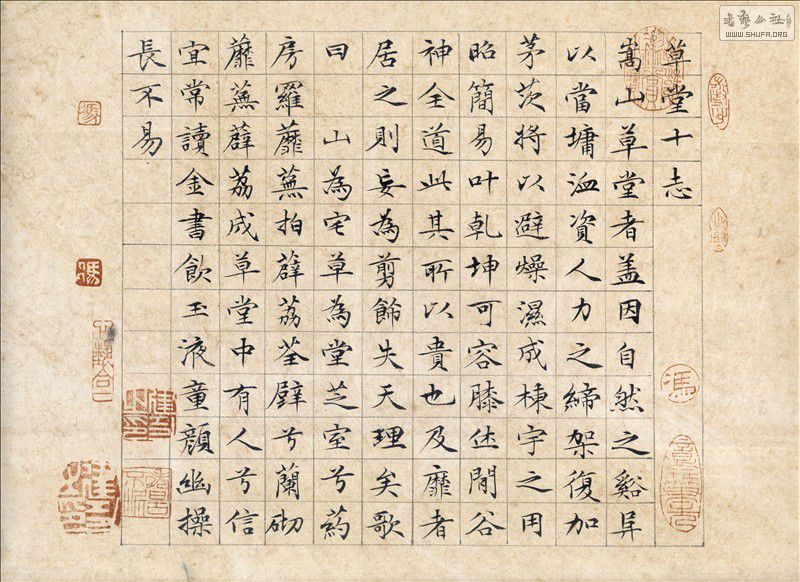 草堂十志
嵩山草堂者盖因自然之谿阜
以當墉洫資人力之締架復加
茅茨将以避燥濕成棟宇之用
昭簡易叶乾坤可容膝休閒谷
神全道此其所以貴也及靡者
居之則妄為剪飾失天理矣歌
曰 山為宅草為堂芝室兮葯
房羅蘼蕪拍薜荔荃壁兮蘭砌
蘼蕪薜荔成草堂中有人兮信
宜常讀金書飲玉液童顏幽操
長不易
馮
馮
書藝公社
WWW.SHUFA.ORG